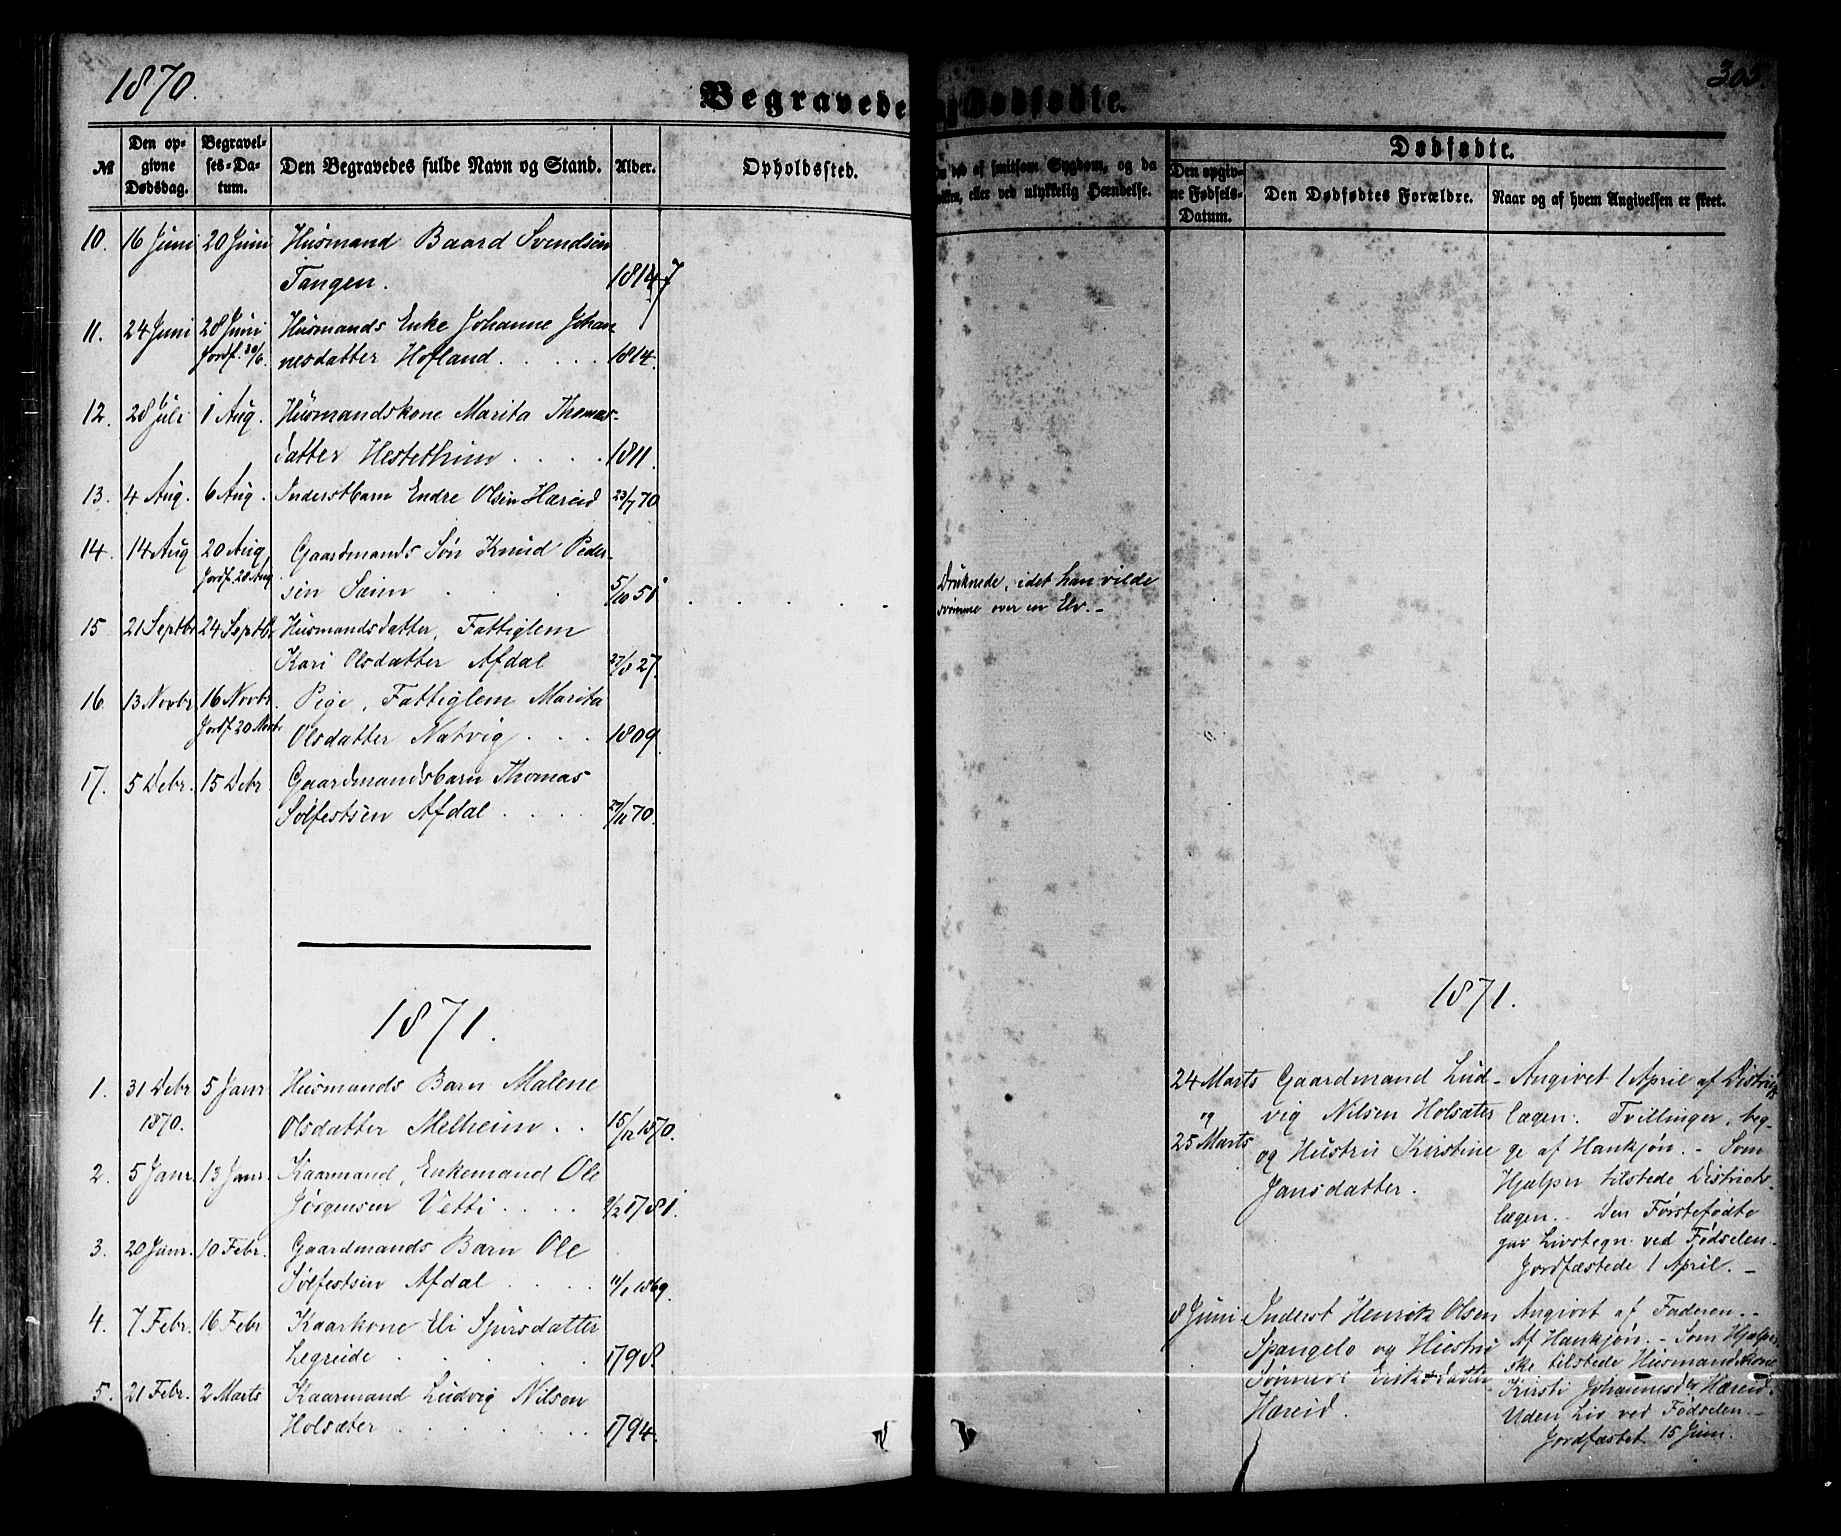 1870.
Begravede
og Dødfødte.
305.
№
Den opgivne Dødsdag.
Begravelses-Datum.
Den Begravedes fulde Navn og Stand.
Alder.
Opholdssted.
død af smitsom Sygdom, og da
eller ved ulykkelig Hændelse.
Dødfødte.
Den opgivne Fødsels-Datum.
Den Dødfødtes Forældre.
Naar og af hvem Angivelsen er skeet.
10. 16 Juni 20 Juni Husmand Baard Svendsen
Tangen. 1814 7
11. 24 Juni 28 Juni Husmands Enke Johanne Johan
Jordf. 30/6. nesdatter Hofland. . . . . 1814.
12. 28 Juli 1 Aug. Husmandskone Marita Thomas-
datter Hestethun . . . . 1811.
13. 4 Aug. 6 Aug. Inderstbarn Endre Olsen Hæreid 23/7 70
14. 14 Aug 20 Aug. Gaardmands Søn Knud Peder-
Jordf. 28 Aug. sen Seim . . . 5/10 51 . . . .
Druknede, idet han vilde
svømme over en Elv. -
15 21 Septbr 24 Septbr. Husmandsdatter, Fattiglem
Kari Olsdatter Afdal 27/8 27.
16 13 Novbr. 16 Novbr. Pige, Fattiglem Marita
Jordf. 20 Novb. Olsdatter Natvig . . . 1809.
17. 5 Debr. 15 Debr. Gaardmandsbarn Thomas
Sølfestsen Afdal . . . . 27/11 70.
1871.
1. 31 Debr 5 Janr Husmands Barn Malene
1870. Olsdatter Melheim . . 15/12 1870.
2. 5 Janr. 13 Janr. Kaarmand, Enkemand Ole
Jørgensen Vetti . . . . 9/2 1781.
3. 20 Janr. 10 Febr. Gaardmands Barn Ole
Sølfestsen Afdal . . . . 11/1 1869.
4. 7 Febr. 16 Febr Kaarkone Eli Sjursdatter
Legreide . . . . . 1798.
5. 21 Febr. 2 Marts Kaarmand Ludvig Nilsen
Holsæter . . . . . . 1794.
1871.
24 Marts Gaardmand Lud-
og vig Nilsen Holsæter
25 Marts og Hustru Kirstine
Jansdatter.
Angivet 1 April af Distrigs
lægen. Tvillinger, beg-
ge af Hankjøn. - Som
Hjælper tilstede Districts-
lægen. . Den Førstefødte
gav Livstegn ved Fødselen.
Jordfæstede 1 April. -
8 Juni Inderst Henrik Olsen
Spangelo og Hustru
Eriksdatter
Hæreid.
Angivet af Faderen. -
Af Hankjøn. - Som Hjælper
ske tilstede Husmandskone
Kirsti Johannesdr Hæreid.
Uden Liv ved Fødselen. -
Jordfæstet 15 Juni.